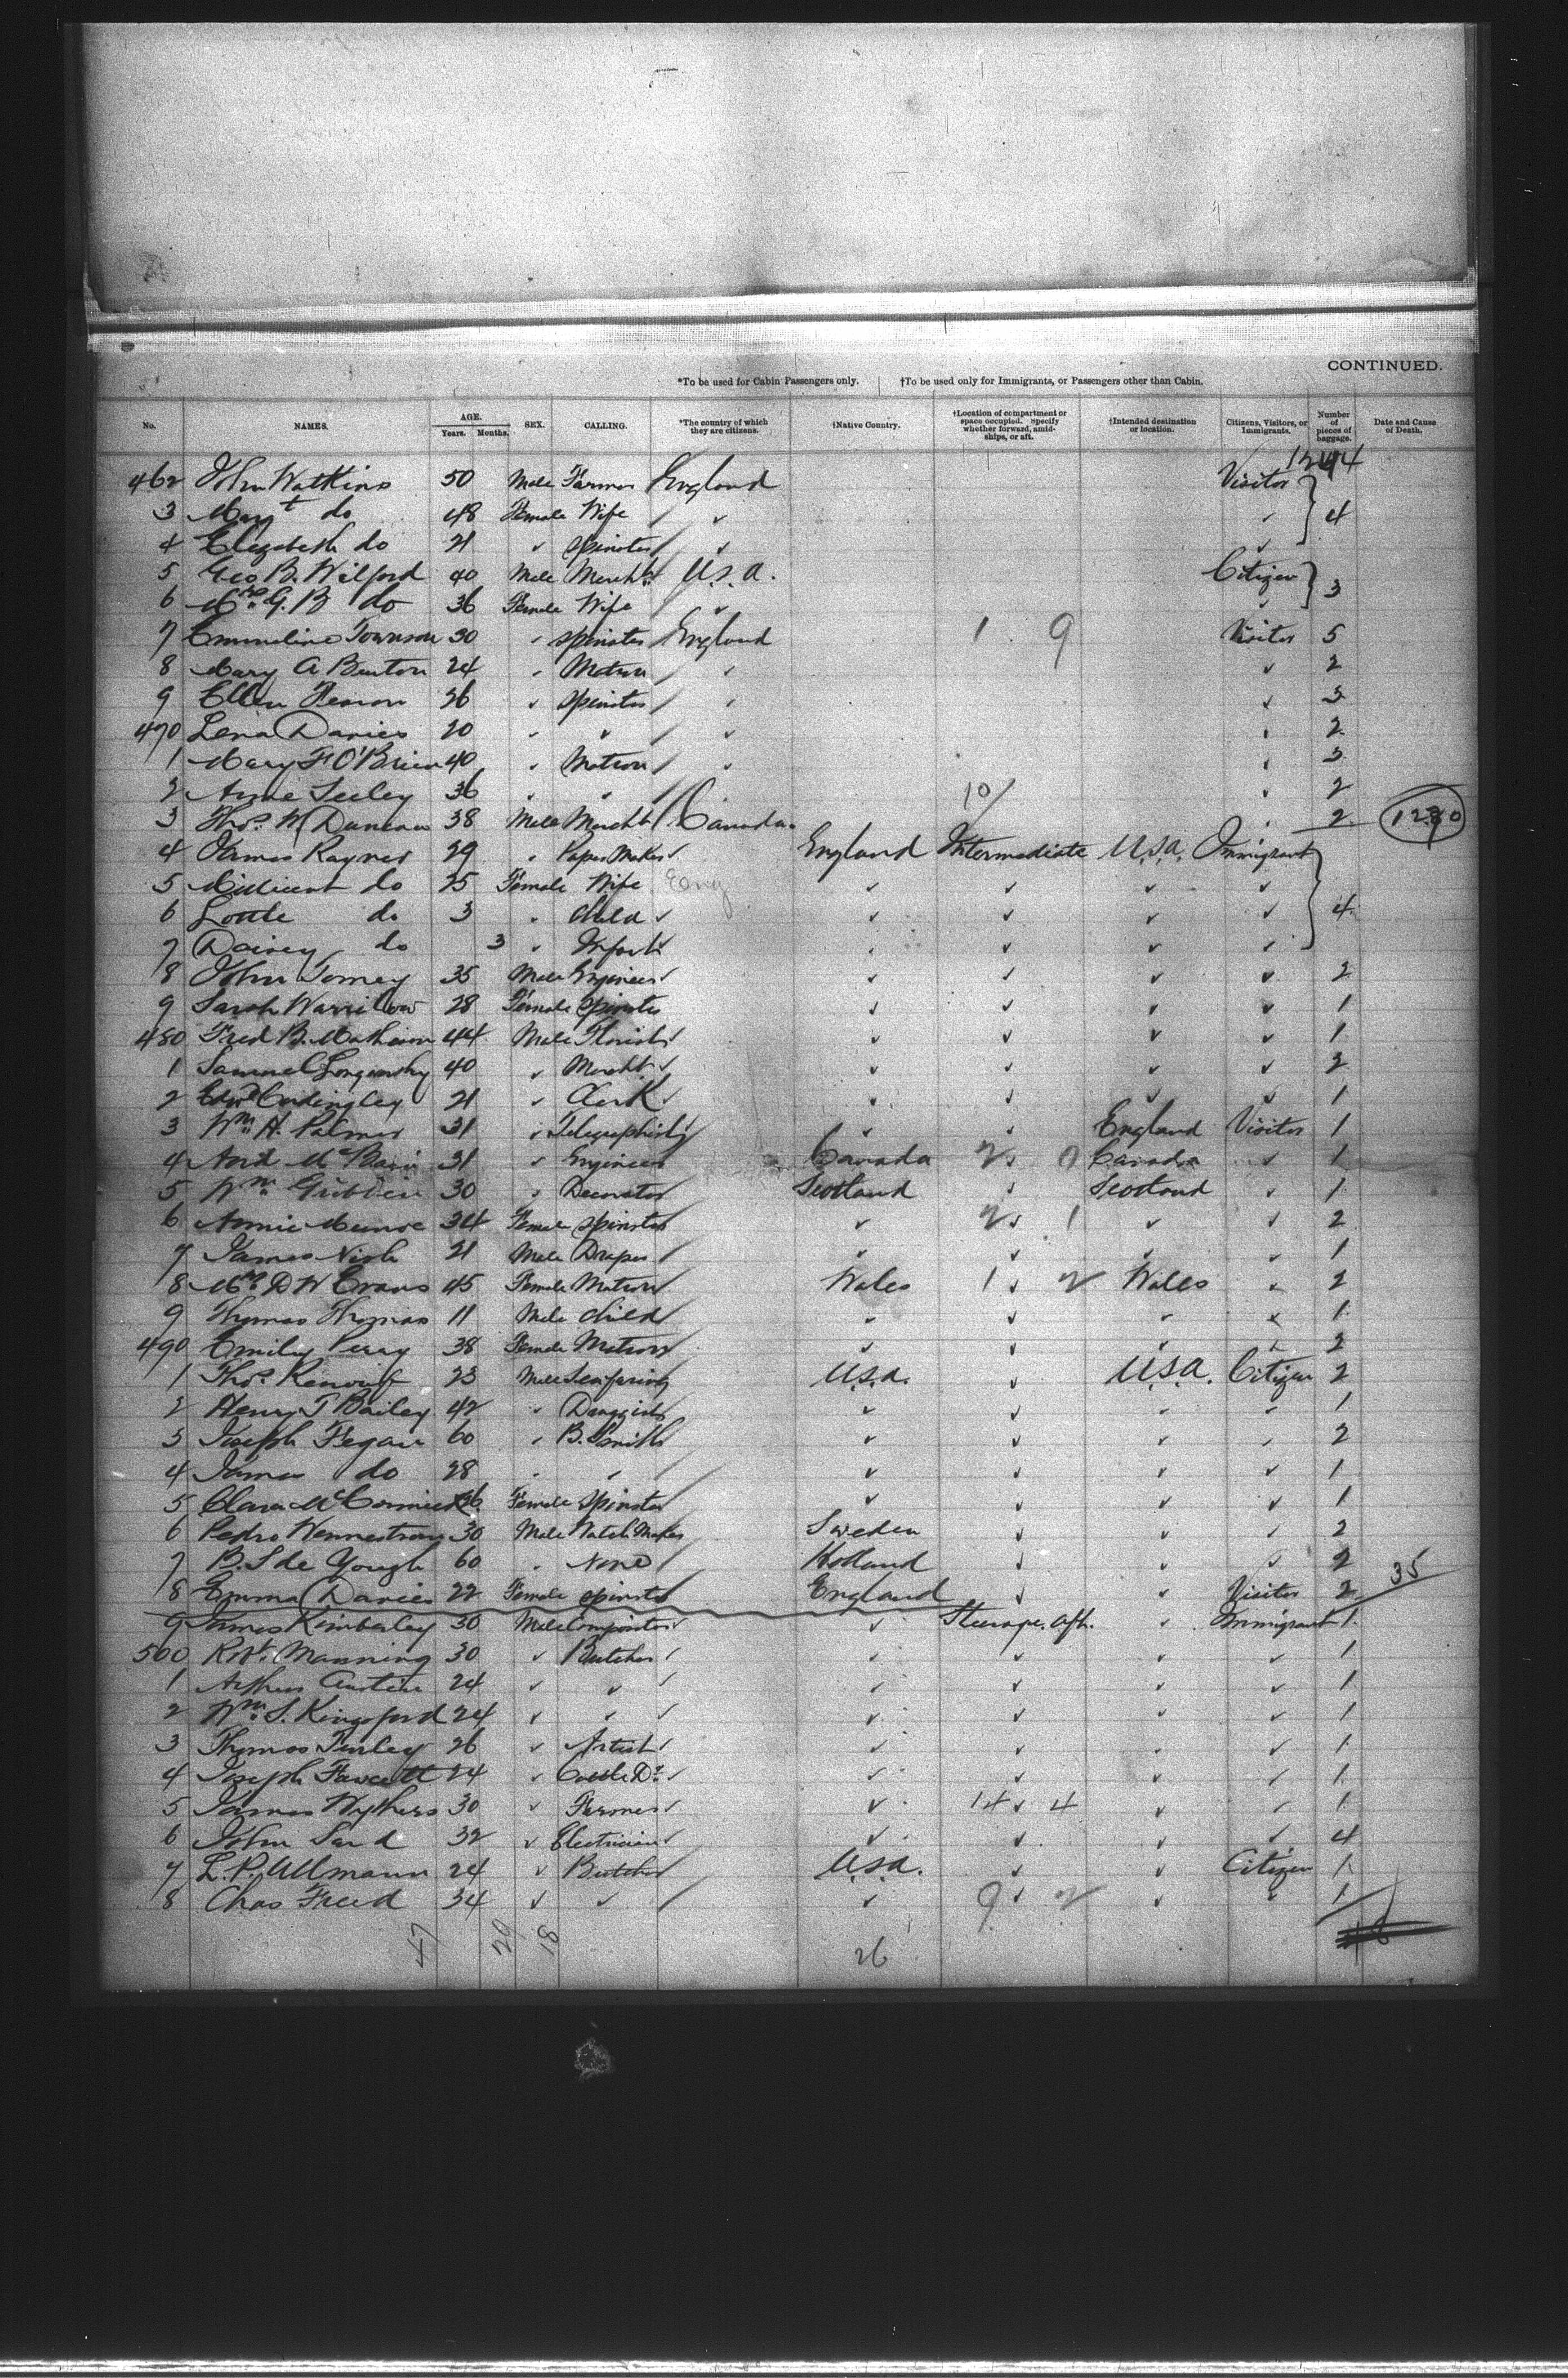 CONTINUED.
*To be used for Cabin Passengers only. †To be used only for Immigrants, or Passengers other than Cabin.
No. NAMES. AGE. Years. Months. SEX. CALLING. *The country of which they are citizens. †Native Country. †Location of compartment or space occupied. Specify whether forward, amidships, or aft. †Intended destination or location. Citizens, Visitors, or Immigrants. Number of pieces of baggage. Date and Cause of Death.
1244
462 John Watkins 50 Male Farmer England Visitor
3 Margt do 48 Female Wife 4
4 Elizabeth do 21 Spinster
5 Geo B. Wilford 40 Male Mercht U.S.A. Citizen
6 Mrs G. B do 36 Female Wife 3
7 Emmeline Townson 30 Spinster England 1 9 Visitor 5
8 Mary A Burton 24 Matron 2
9 Ellen 26 Spinster 3
470 Lena Davies 20 2
1 Mary F O'Brien 40 Matron 3
2 Anne Seeley 36 10/ 2
3 Thos. W Duncan 38 Male Mercht Canada. 2
4 James Rayner 29 Paper Maker England Intermediate U.S.A. Immigrant
5 Millicent do 25 Female Wife Eng
6 Lottie do 3 Child 4
7 Daisey do 3 Infant
8 John Tomey 35 Male Engineer 2
9 Sarah Warrilow 28 Female Spinster 1
480 Fred B. Mathison 44 Male Florist 1
1 Samuel 40 Mercht 2
2 Edwd Cordingley 21 Clerk 1
3 Wm H. Palmer 31 Telegraphist England Visitor 1
4 31 Engineer Canada Canada 1
5 Wm 30 Decorator Scotland Scotland 1
6 Annie Munroe 34 Female Spinster 2 1 2
7 James Nish 21 Male Draper 1
8 Mrs D W Evans 45 Female Matron Wales 1 2 Wales 2
9 Thomas Thomas 11 Male Child 1
490 Emily Perry 38 Female Matron 2
1 Thos. Renouf 23 Male Seafaring U.S.A. U.S.A. Citizen 2
2 Henry T Bailey 42 Druggist 1
3 Joseph Fegan 60 B. Smith 2
4 James do 28 1
5 Clara McCormick 26 Female Spinster 1
6 Pedro Wennestrom 30 Male Watch Maker Sweden 2
7 B. S de Yough 60 None Holland 2
35
8 Emma Davies 22 Female Spinster England Visitor 2
9 James Kimberley 30 Male Compositor Steerage. Aft. Immigrant 1
500 Robt. Manning 30 Butcher 1
1 Arthur Austin 24 1
2 Wm S. Kingsford 24 1
3 Thomas Tinley 26 Artist 1
4 Joseph Fawcett 24 Cattle Dr 1
5 James Wythers 30 Farmer 14 4 1
6 John Sand 32 Electrician 4
7 L. P. Ullmann 24 Butcher U.S.A. Citizen 1
8 Chas Freed 34 9 2 1
47 29 18 26